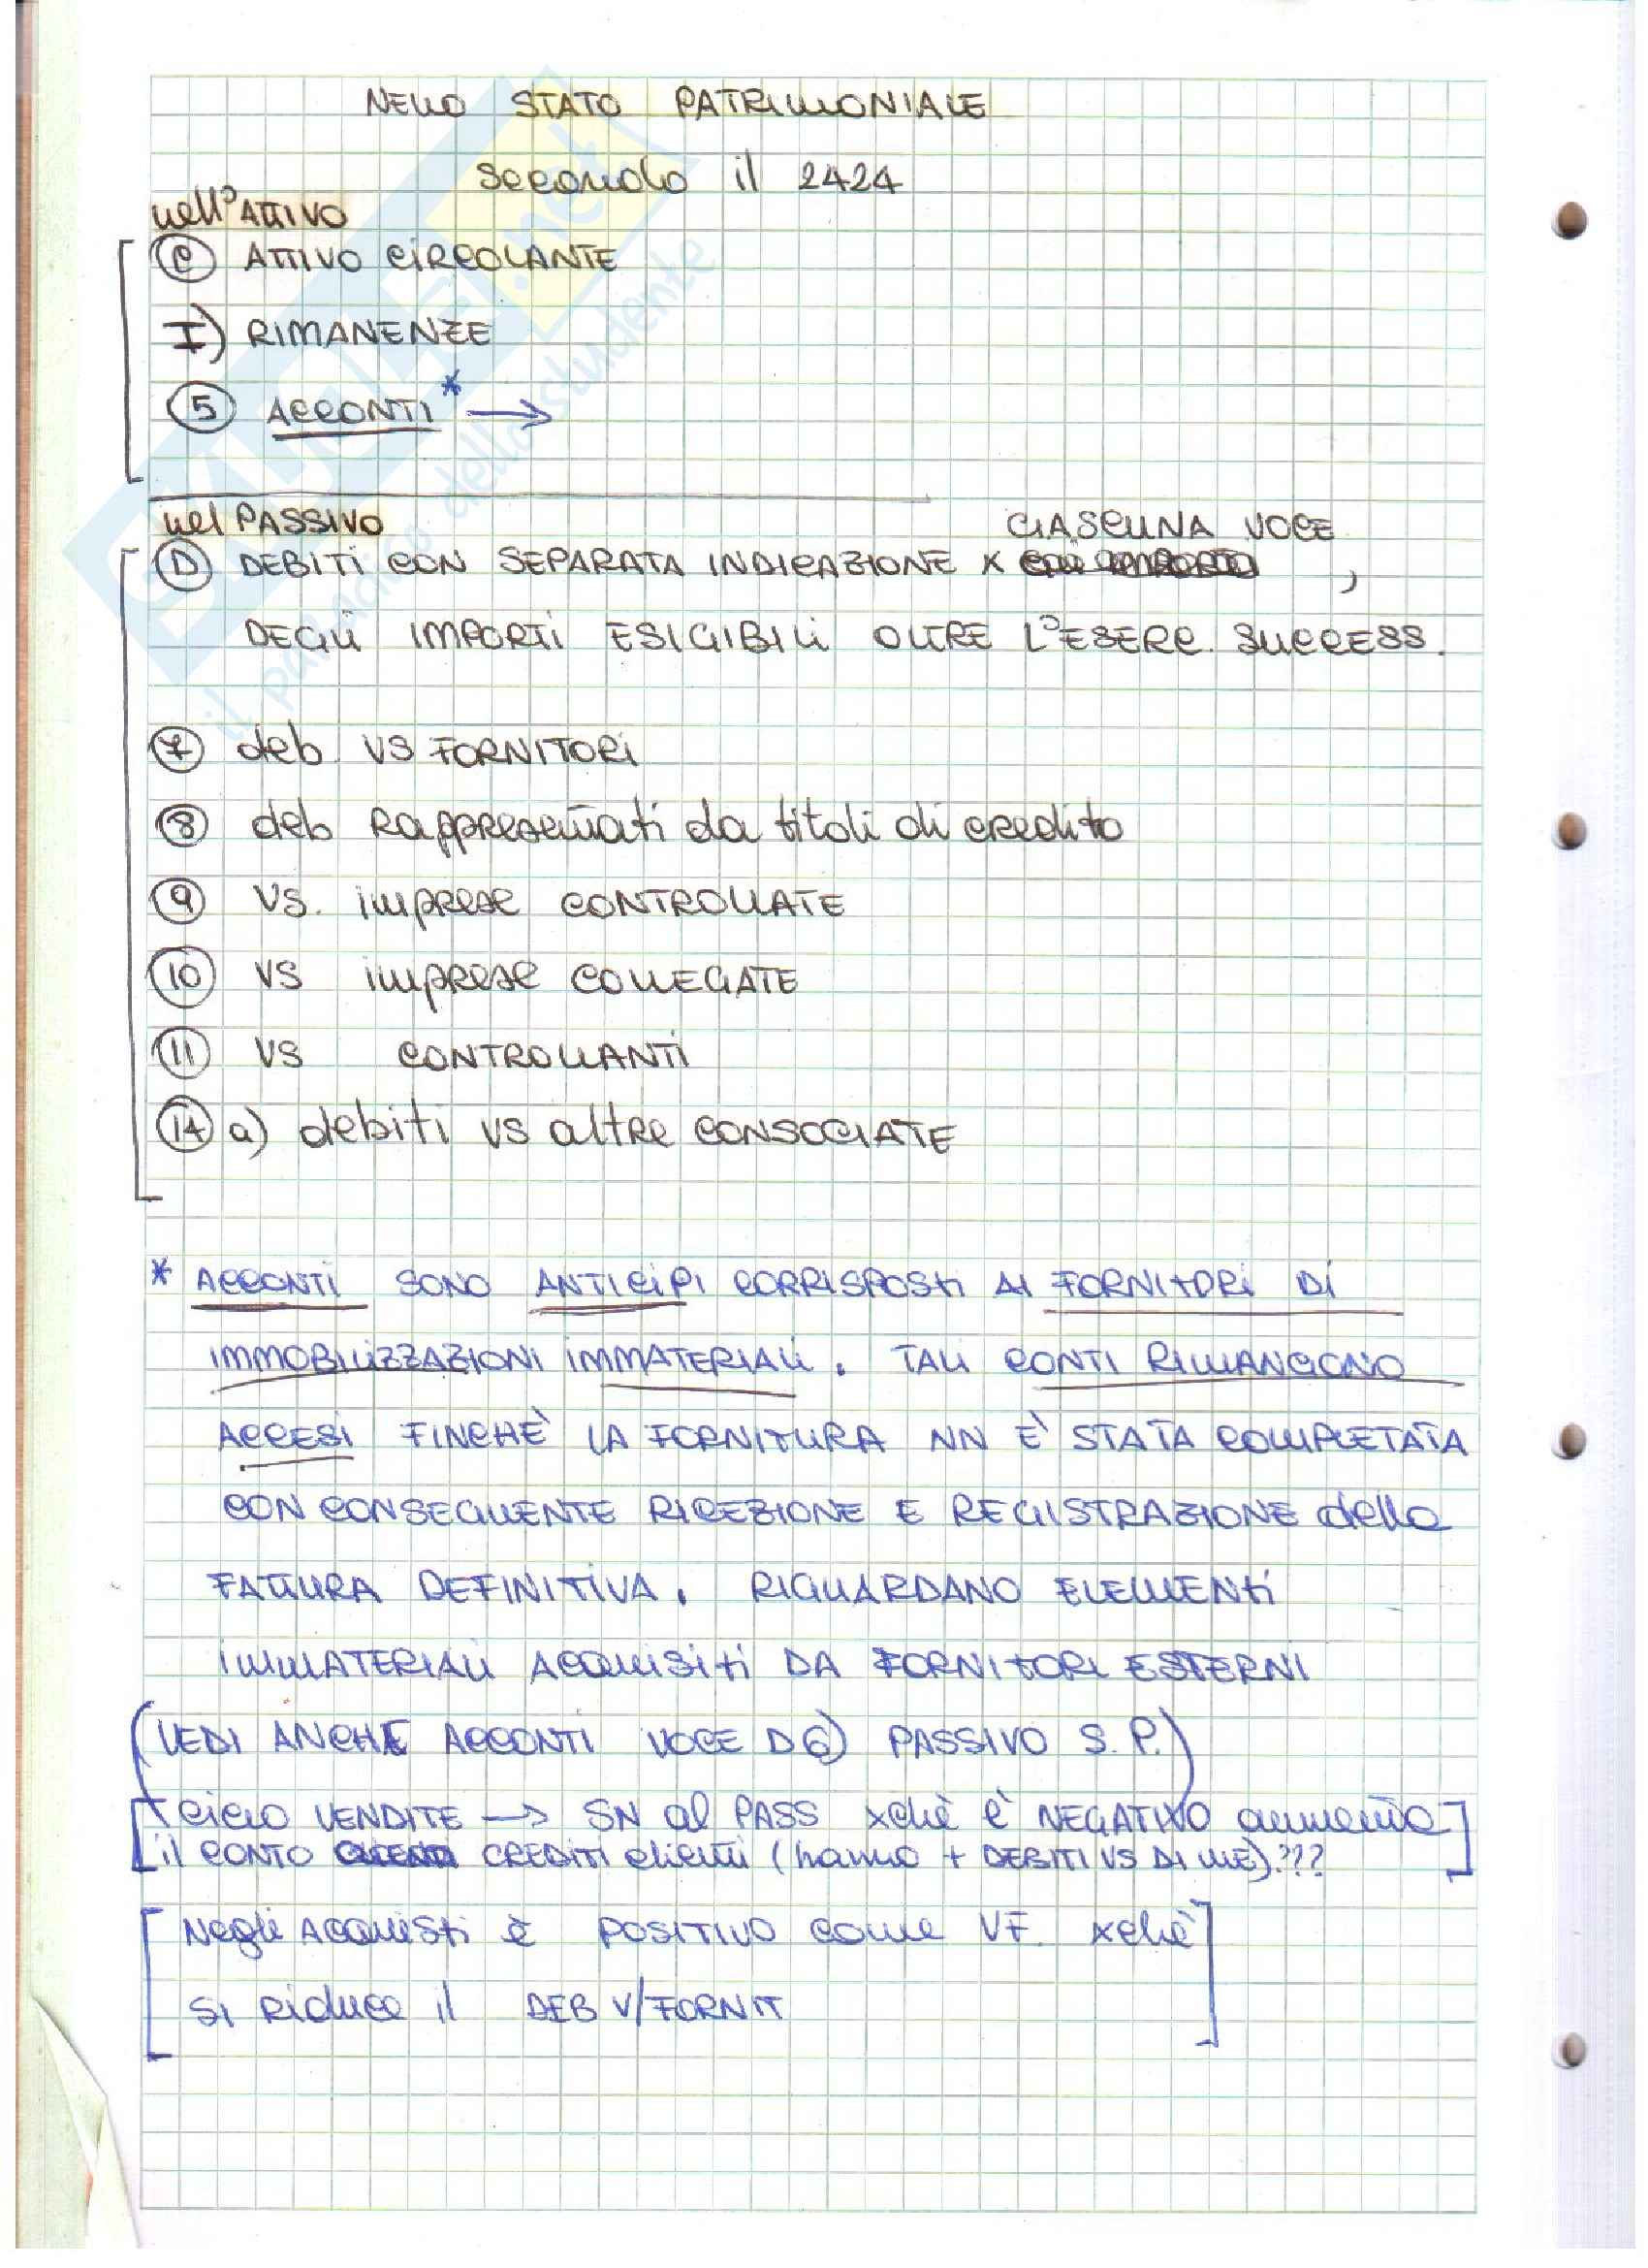 NELLO STATO PATRIMONIALE
secondo il 2424
nell'ATTIVO
C ATTIVO CIRCOLANTE
I) RIMANENZE
5 ACCONTI * →
nel PASSIVO
CIASCUNA VOCE
D DEBITI CON SEPARATA INDICAZIONE X ,
DEGLI IMPORTI ESIGIBILI OLTRE L'ESERC. SUCCESS.
7 deb VS FORNITORI
8 deb Rappresentati da titoli di credito
9 VS. imprese CONTROLLATE
10 VS imprese COLLEGATE
11 VS CONTROLLANTI
14 a) debiti VS altre CONSOCIATE
* ACCONTI SONO ANTICIPI CORRISPOSTI AI FORNITORI DI
IMMOBILIZZAZIONI IMMATERIALI. TALI CONTI RIMANGONO
ACCESI FINCHÈ LA FORNITURA NN È STATA COMPLETATA
CON CONSEGUENTE RICEZIONE E REGISTRAZIONE della
FATTURA DEFINITIVA. RIGUARDANO ELEMENTI
IMMATERIALI ACQUISITI DA FORNITORI ESTERNI
(VEDI ANCHE ACCONTI VOCE D6) PASSIVO S.P.)
ciclo VENDITE → SN al PASS xchè è NEGATIVO aumenta
il CONTO CREDITI clienti (hanno + DEBITI VS DI ME).???
Negli ACQUISTI è POSITIVO come VF. xchè
SI Riduce il DEB V/FORNIT
Skuola.net
il paradiso dello studente